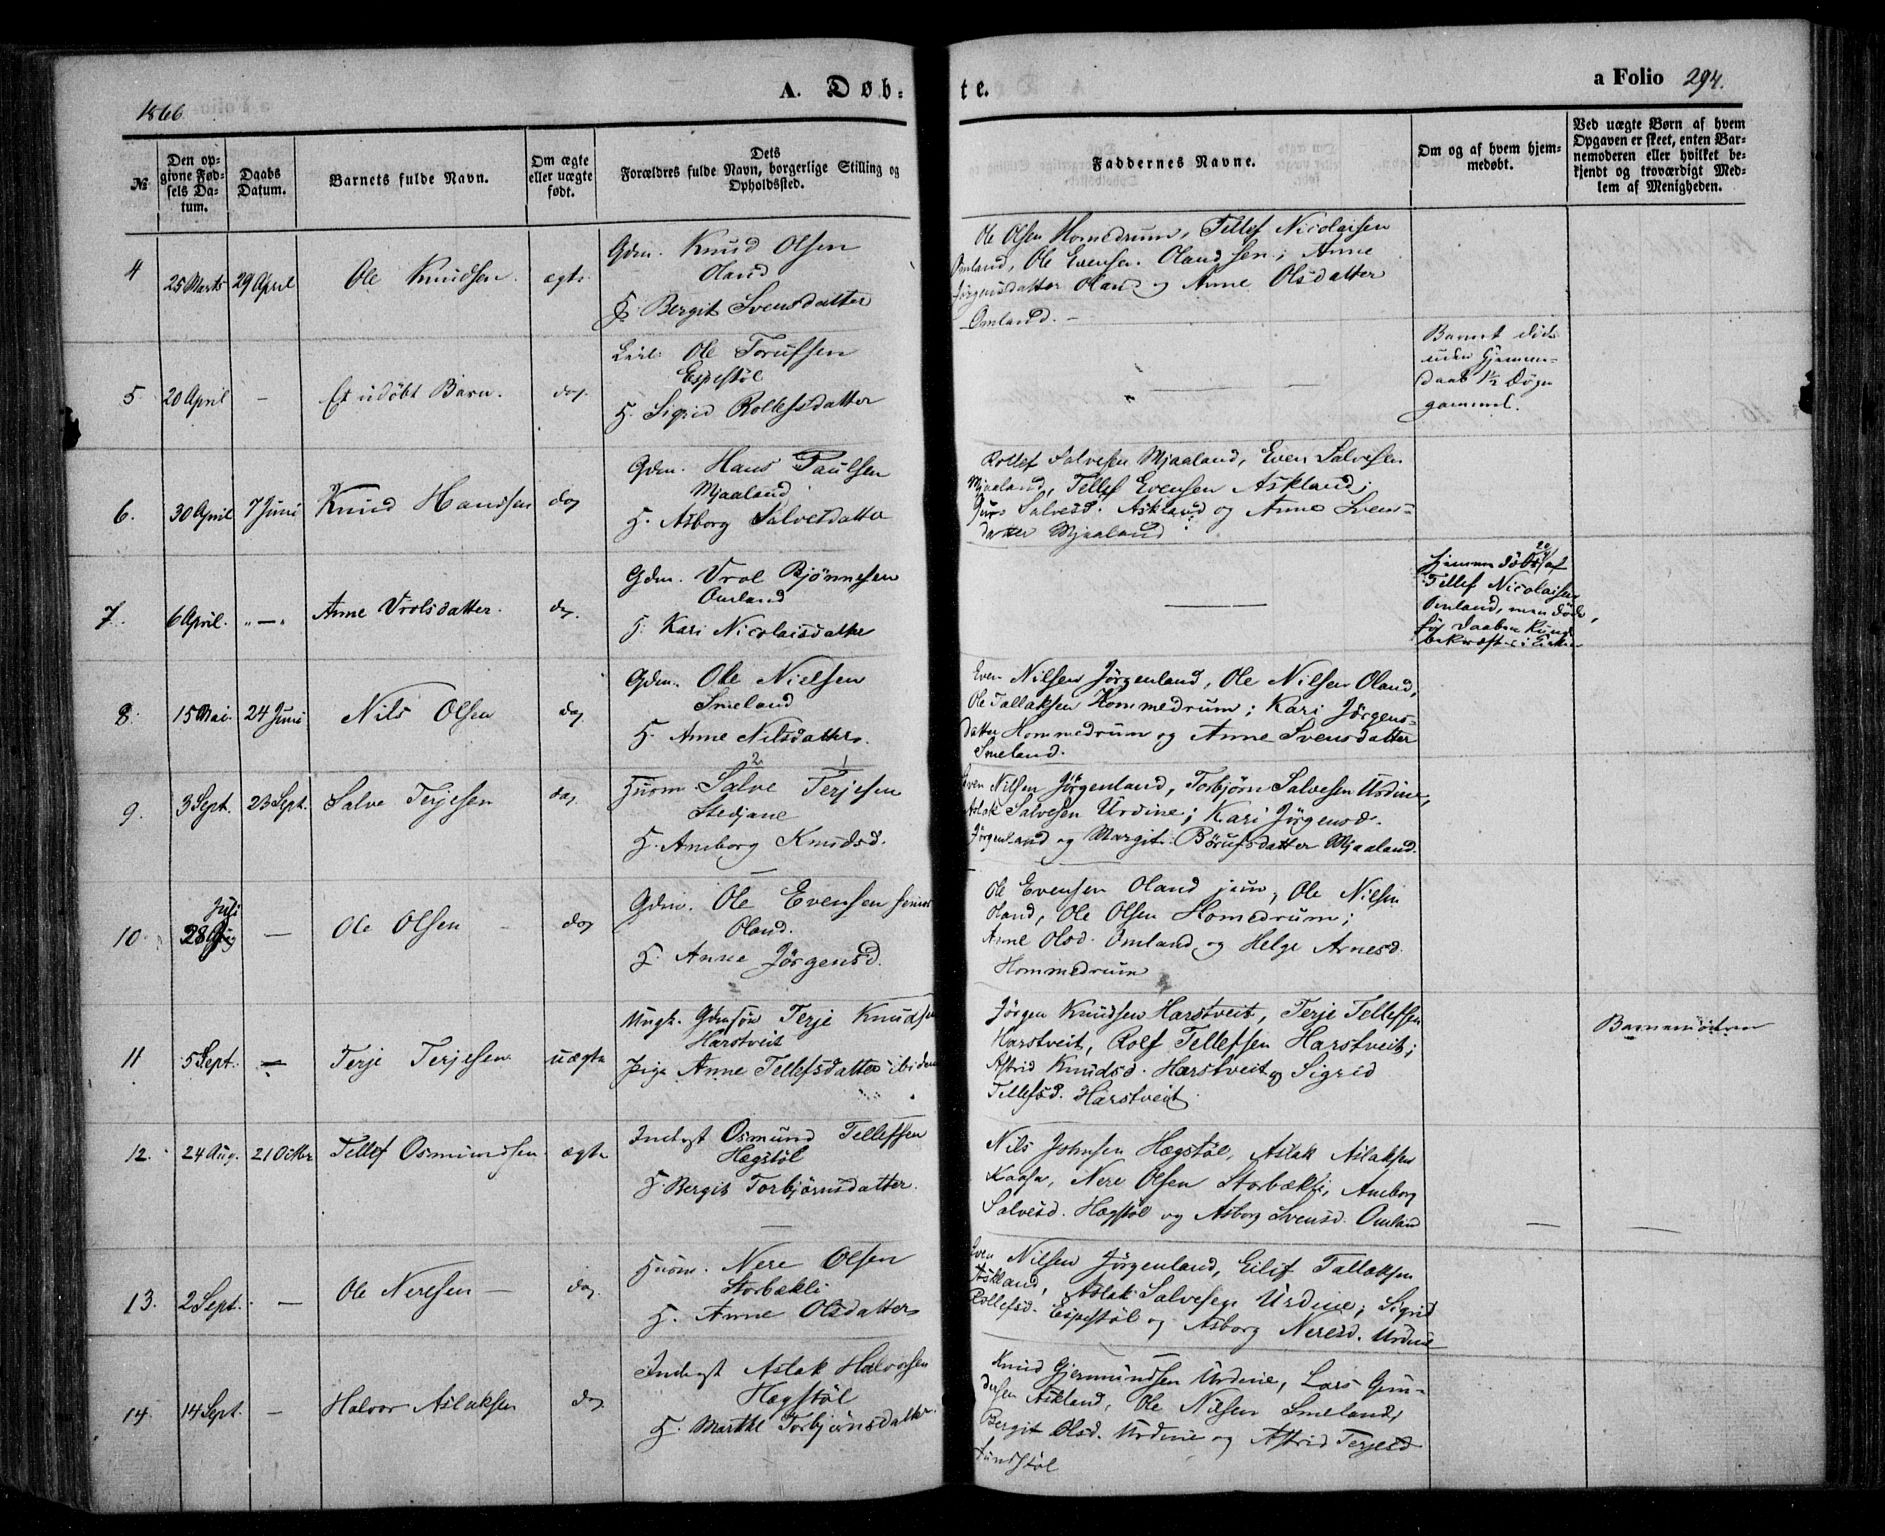 1866
A. Døb-
te.
a Folio 294.
№
Den op-
givne Fød-
sels Da-
tum.
Daabs
Datum.
Barnets fulde Navn.
Om ægte
eller uægte
født.
Dets
Forældres fulde Navn, borgerlige Stilling og
Opholdssted.
Faddernes Navne.
Om og af hvem hjem-
medøbt.
Ved uægte Børn af hvem
Opgaven er skeet, enten Bar-
nemoderen eller hvilket be-
kjendt og troværdigt Med-
lem af Menigheden.
4
25 Marts
29 April
Ole Knudsen
ægte
Gdm. Knud Olsen
Oland
H. Bergit Svensdatter
Ole Olsen Homedrum, Tellef Nicolaisen
Omland, Ole Evensen Oland sen; Anne
Jørgensdatter Oland og Anne Olsdatter
Omland. —
5
20 April
—
Et udøbt Barn.
do
Leil. Ole Torufsen
Espestøl
H. Sigrid Rollefsdatter
Barnet døde
uden Hjemme-
daab 1½ Døgn
gammel.
6.
30 April
7 Juni
Knud Handsen
do
Gdm. Hans Paulsen
Mjaaland
H. Asborg Salvesdatter
Rollef Salvesen Mjaaland, Even Salvesen
Mjaaland, Tellef Evensen Askland;
Guro Salvesd. Askland og Anne Svens-
datter Mjaaland
7.
6 April.
„ — „
Anne Vrolsdatter.
do.
Gdm. Vrol Bjønnesen
Omland
H. Kari Nicolaisdatter
Hjemmedøbt af
Tellef Nicolaisen
Omland, men døde,
før Daaben kunde
bekræftes i Kirken
8.
15 Mai.
24 Juni
Nils Olsen
do
Gdm. Ole Nielsen
Smeland
H. Anne Nilsdatter.
Even Nilsen Jørgenland, Ole Nilsen Oland,
Ole Tallaksen Hommedrum; Kari Jørgens-
datter Hommedrum og Anne Svensdatter
Smeland.
9.
3 Sept.
23 Sept.
Salve Terjesen
do
2 1
Huusm. Salve Terjesen
Stedjane
H. Amborg Knudsd.
Even Nilsen Jørgenland, Torbjørn Salvesen Urdine,
Aslak Salvesen Urdine; Kari Jørgensd.
Jørgenland og Margit Børufsdatter Mjaaland.
10
Juli
28 Aug
—
Ole Olsen
do
Gdm. Ole Evensen senior
Oland.
H. Anne Jørgensd.
Ole Evensen Oland jun, Ole Nilsen
Oland, Ole Olsen Homedrum;
Anne Olsd. Omland og Helge Arnesd.
Hommedrum
11
5 Sept.
—
Terje Terjesen
uægte
Ungk. Gdmsøn Terje Knudsen
Harstveit
Pige Anne Tellefsdatter ibidem
Jørgen Knudsen Harstveit, Terje Tellefsen
Harstveit, Rolf Tellefsen Harstveit;
Astrid Knudsd. Harstveit og Sigrid
Tellefsd. Harstveit.
Barnemoderen
12.
24 Aug.
21 Octbr
Tellef Osmundsen
ægte
Inderst Osmund Tellefsen
Hægstøl
H. Bergit Torbjørnsdatter.
Nils Johnsen Hægstøl, Aslak Aslaksen
Kaasa, Nere Olsen Storbækli, Amborg
Salvesd. Hægstøl og Asborg Svensd. Omland
13.
2 Sept.
—
Ole Neresen
do
Huusm. Nere Olsen
Storbækli
H. Anne Olsdatter
Even Nilsen Jørgenland, Eilif Tallaksen
Askland, Aslak Salvesen Urdine; Sigrid
Rollefsd. Espestøl og Asborg Neresd. Urdine
14.
14 Sept.
—
Halvor Aslaksen
do
Inderst Aslak Halvorsen
Hægstøl
H. Marthe Torbjørnsdatter.
Knud Gjermundsen Urdine, Lars Gun-
dersen Askland, Ole Nilsen Smeland;
Bergit Olsd. Urdine og Astrid Terjesd